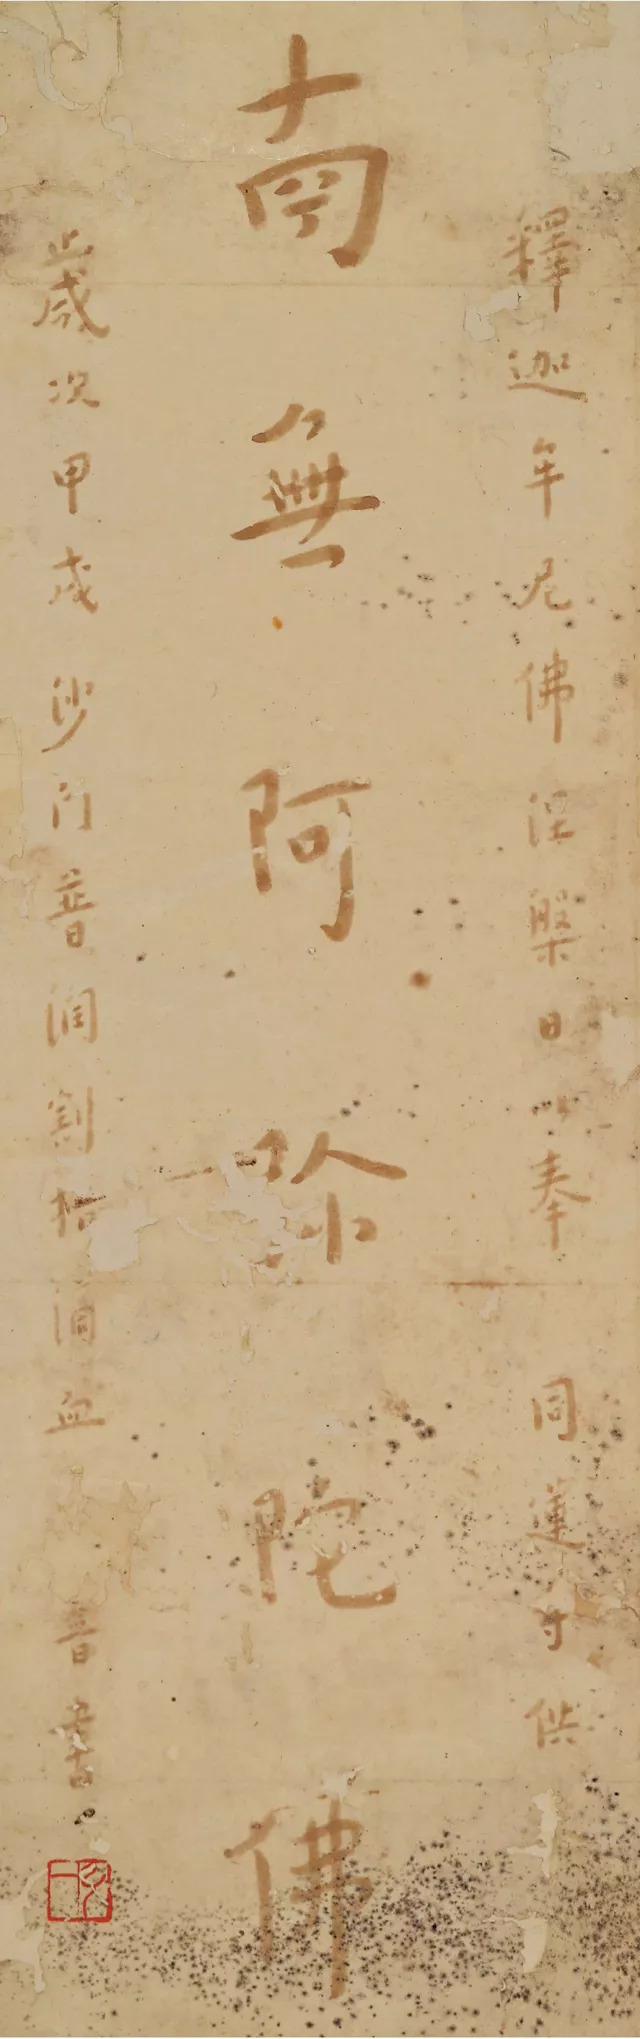 釋迦牟尼佛涅槃日以奉 同蓮寺供
南無阿弥陀佛
歲次甲戌沙門普潤割指瀝血 音書